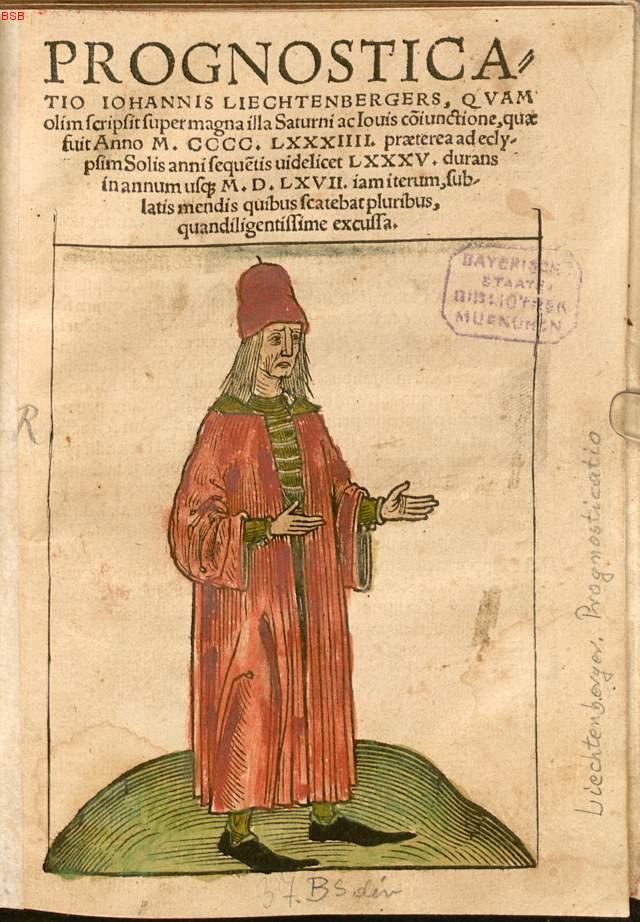 BSB
PROGNOSTICA⸗
TIO IOHANNIS LIECHTENBERGERS, QVAM
olim scripsit super magna illa Saturni ac Iouis cõiunctione, quæ
fuit Anno M. CCCC. LXXXIIII. præterea ad ecly⸗
psim Solis anni sequẽtis uidelicet LXXXV. durans
in annum usq; M. D. LXVII. iam iterum, sub⸗
latis mendis quibus scatebat pluribus,
quandiligentissime excussa.
BAYERISCHE
STAATS-
BIBLIOTHEK
MUENCHEN
R
Liechtenberger. Prognosticatio